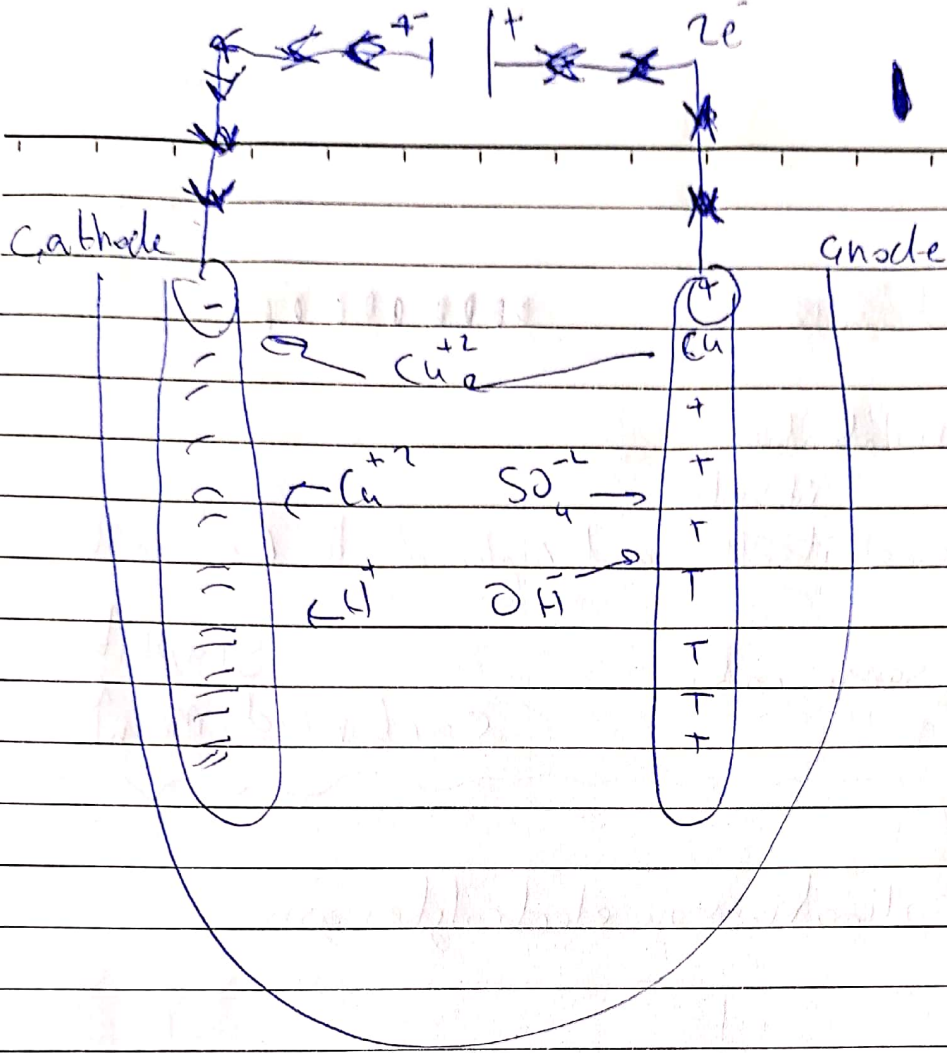 + - + 2e⁻
Cathode anode
- +
Cu⁺² Cu
+
+
Cu⁺² SO₄⁻²
+
H⁺ OH⁻
+
+
+
+